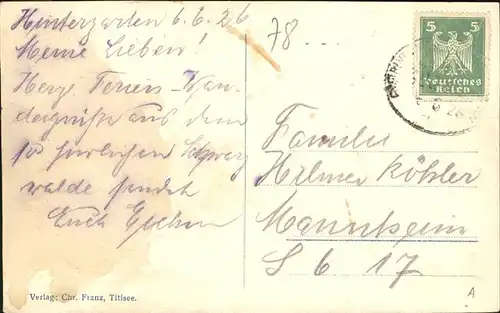 Hinterzarten 6.6.26
Meine Lieben!
Herzl. Ferien-Wan-
dergrüße aus dem
so herrlichen Schwarz
walde sendet
Euch
78...
5 5
Deutsches
Reich
Familie
Hilmer Köhler
Mannheim
S 6 17
Verlag: Chr. Franz, Titisee.
A